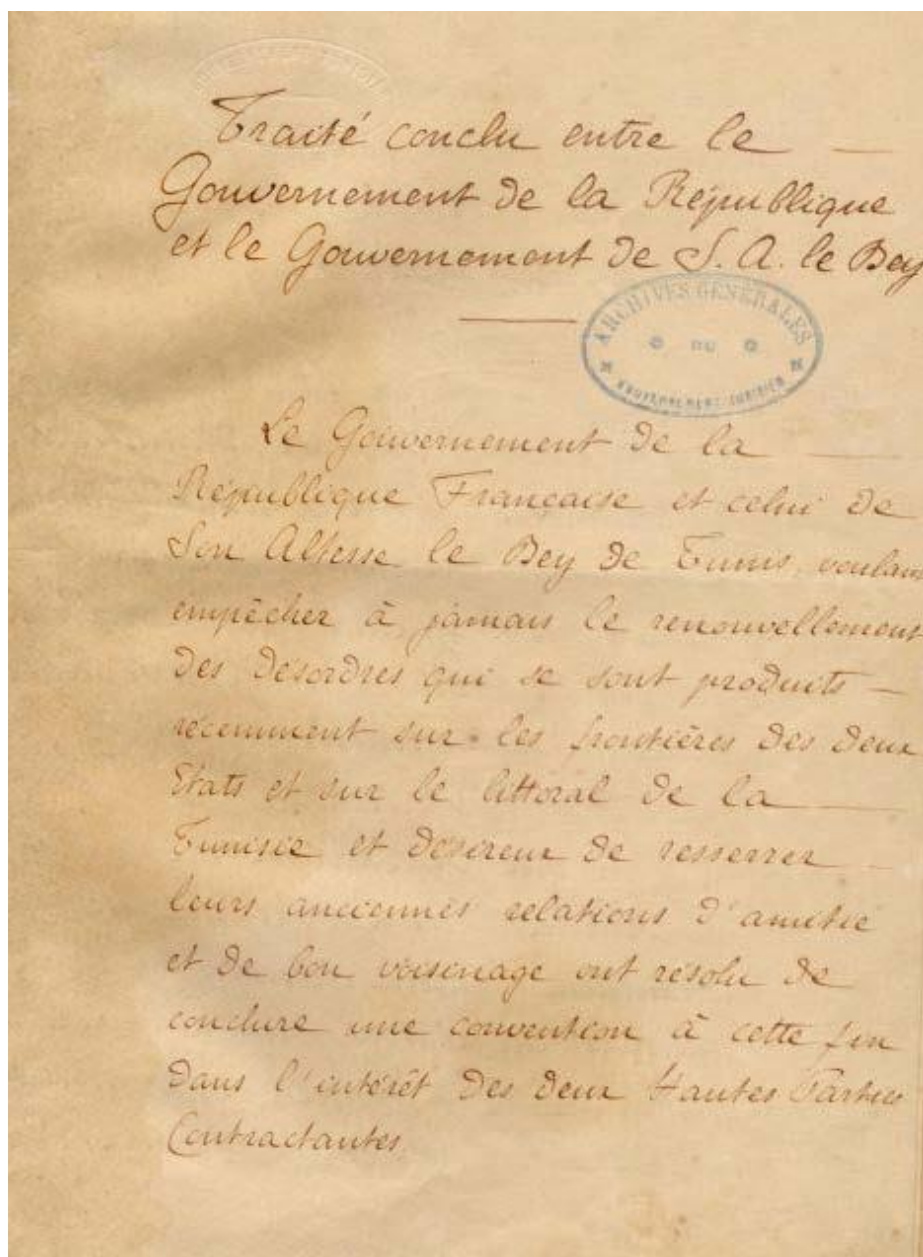 Traité conclu entre le —
Gouvernement de la République
et le Gouvernement de S. A. le Bey
ARCHIVES GÉNÉRALES
DU
GOUVERNEMENT TUNISIEN
Le Gouvernement de la —
République Française et celui de
Son Altesse le Bey de Tunis, voulant
empêcher à jamais le renouvellement
des désordres qui se sont produits —
récemment sur les frontières des deux
Etats et sur le littoral de la —
Tunisie et désireux de resserrer —
leurs anciennes relations d'amitié
et de bon voisinage ont résolu de
conclure une convention à cette fin
dans l'intérêt des deux Hautes Parties
Contractantes